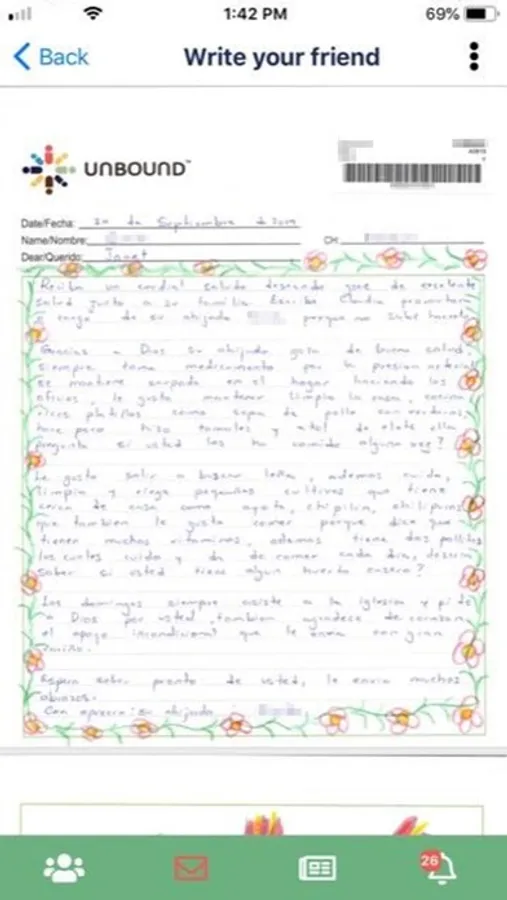 1:42 PM 69%
Back Write your friend
UNBOUND™
Date/Fecha: de Septiembre
Name/Nombre:
CH:
Dear/Querido: Janet
Reciba un cordial saludo deseando goce de excelente
salud junto a su familia. Escribe Claudia promotora
a cargo de su ahijada porque no sabe hacerlo.
Gracias a Dios su ahijada goza de buena salud,
siempre toma medicamento por la presion arterial
se mantiene ocupada en el hogar haciendo los
oficios, le gusta mantener limpia la casa, cocina
ricos platillos como sopa de pollo con verduras,
hace poco hizo tamales y atol de elote ella
pregunta si usted los ha comido alguna vez?
Le gusta salir a buscar leña, ademas cuida,
limpia y riega pequeños cultivos que tiene
cerca de casa como ayote, chipilin,
que tambien le gusta comer porque dice que
tienen muchas vitaminas, ademas tiene dos pollitos
los cuales cuida y da de comer cada dia, desea
saber si usted tiene algun huerto casero?
Los domingos siempre asiste a la iglesia y pide
a Dios por usted, tambien agradece de corazon
el apoyo incondicional que le envia con gran
cariño.
Espera saber pronto de usted, le envia muchos
abrazos.
Con aprecio: su ahijada
26